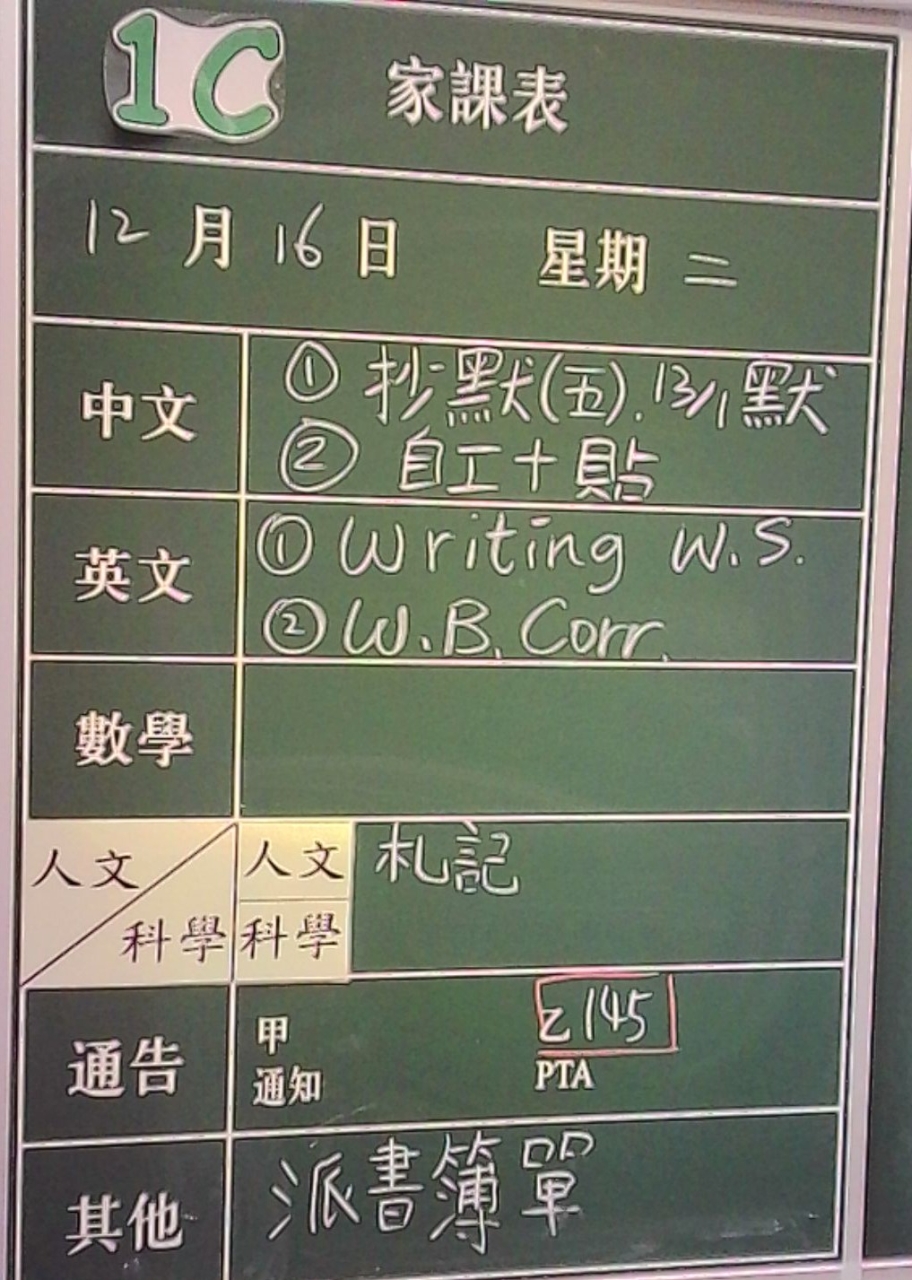 1C 家課表
12月16日 星期二
中文 ① 抄默(五). 13/1默
② 自工+貼
英文 ① Writing W.S.
② W.B. Corr.
數學
人文 人文 札記
科學 科學
通告 甲 乙145
通知 PTA
其他 派書簿單